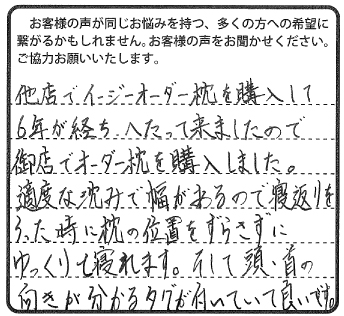 お客様の声が同じお悩みを持つ、多くの方への希望に
繋がるかもしれません。お客様の声をお聞かせください。
ご協力お願いいたします。
他店でイージーオーダー枕を購入して
6年が経ち、へたって来ましたので
御店でオーダー枕を購入しました。
適度な沈みで幅があるので寝返りを
うった時に枕の位置をずらさずに
ゆっくりと寝れます。そして頭・首の
向きが分かるタグが付いていて良いです。